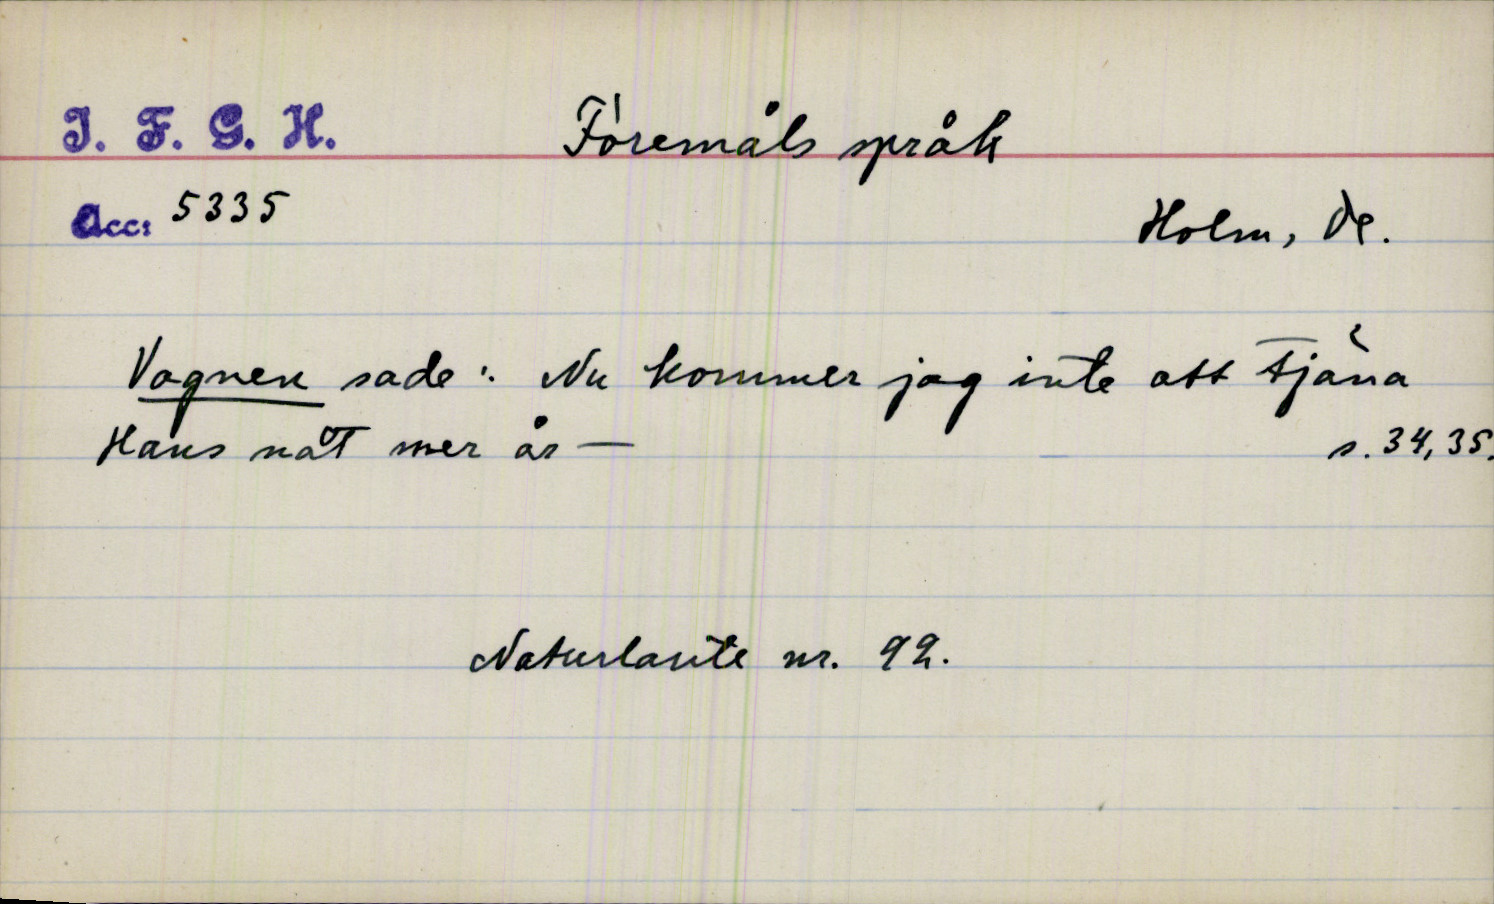 I. F. G. H.
Föremåls språk
Acc: 5335
Holm, Ds.
Vagnen sade: Nu kommer jag inte att tjäna
Hans nåt mer år —
s. 34, 35.
Naturlaute nr. 92.